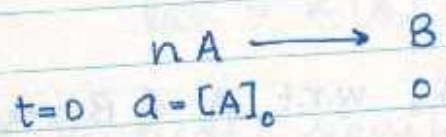 nA ⟶ B
t=0 a=[A]₀ 0